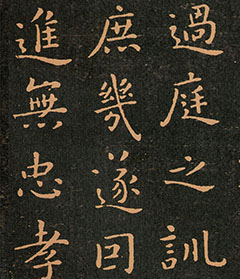 過庭之訓
庶幾遂回
進無忠孝